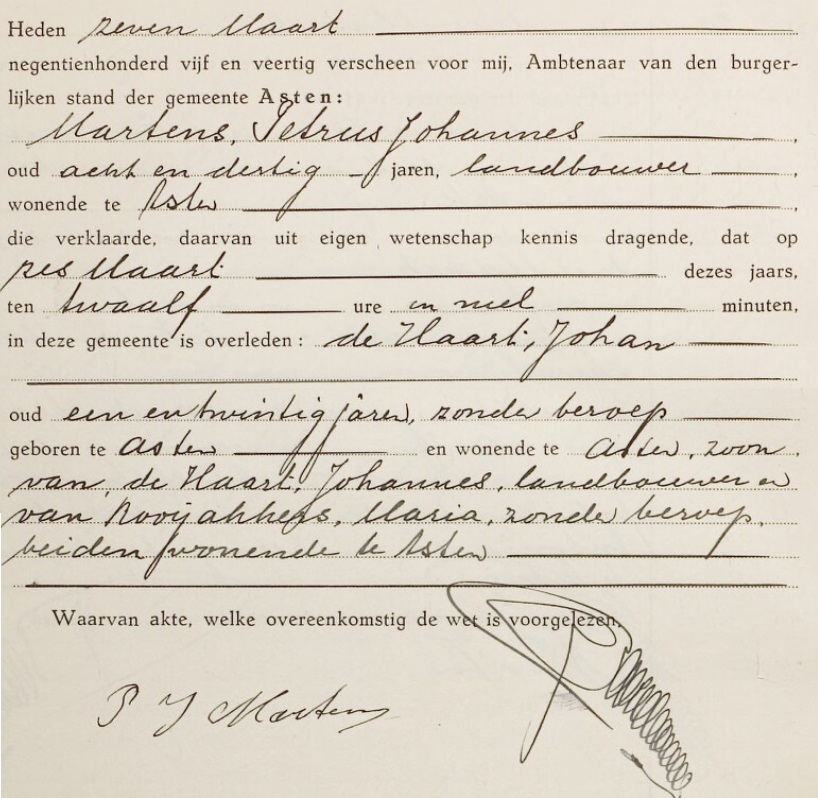 Heden zeven Maart
negentienhonderd vijf en veertig verscheen voor mij, Ambtenaar van den burger-
lijken stand der gemeente Asten:
Martens, Petrus Johannes,
oud acht en dertig jaren, landbouwer,
wonende te Asten,
die verklaarde, daarvan uit eigen wetenschap kennis dragende, dat op
zes Maart dezes jaars,
ten twaalf ure en nul minuten,
in deze gemeente is overleden: de Haart, Johan
oud een en twintig jaren, zonder beroep
geboren te Asten en wonende te Asten, zoon
van de Haart, Johannes, landbouwer en
van Rooijakkers, Maria, zonder beroep,
beiden wonende te Asten
Waarvan akte, welke overeenkomstig de wet is voorgelezen,
P J Martens